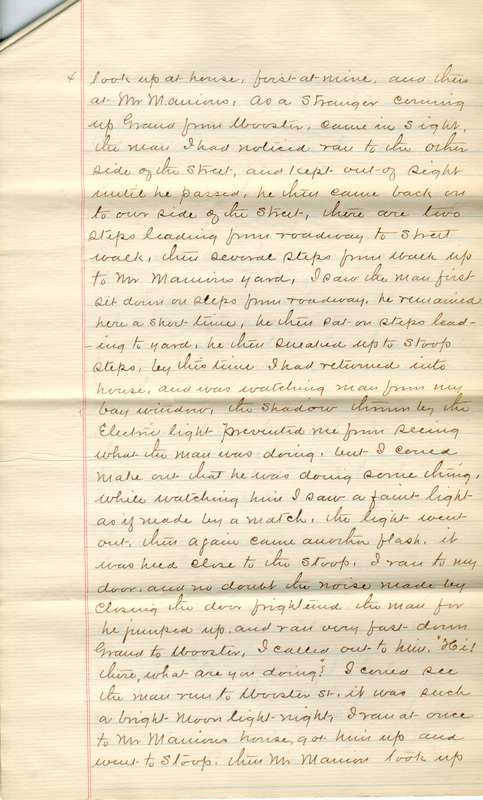 4 look up at house, first at mine, and then
at Mr Manions, as a Stranger coming
up Grand from Wooster, came in Sight,
the man I had noticed ran to the other
side of the Street, and kept out of sight
until he passed, he then came back on
to our side of the Street, there are two
steps leading from roadway to Street
walk, then several steps from walk up
to Mr Manions yard, I saw the man first
sit down on steps from roadway, he remained
here a short time, he then sat on steps lead-
-ing to yard, he then sneaked up to Stoop
steps, by this time I had returned into
house, and was watching man from my
bay window, the shadow thrown by the
Electric light prevented me from seeing
what the man was doing, but I could
make out that he was doing some thing,
while watching him I saw a faint light
as if made by a match, the light went
out, then again came another flash, it
was held close to the Stoop, I ran to my
door, and no doubt the noise made by
closing the door frightened the man for
he jumped up, and ran very fast down
Grand to Wooster, I called out to him, "Hi!
there, what are you doing"? I could see
the man run to Wooster St. it was such
a bright Moon light night, I ran at once
to Mr Manions house, got him up and
went to Stoop, then Mr Manion look up